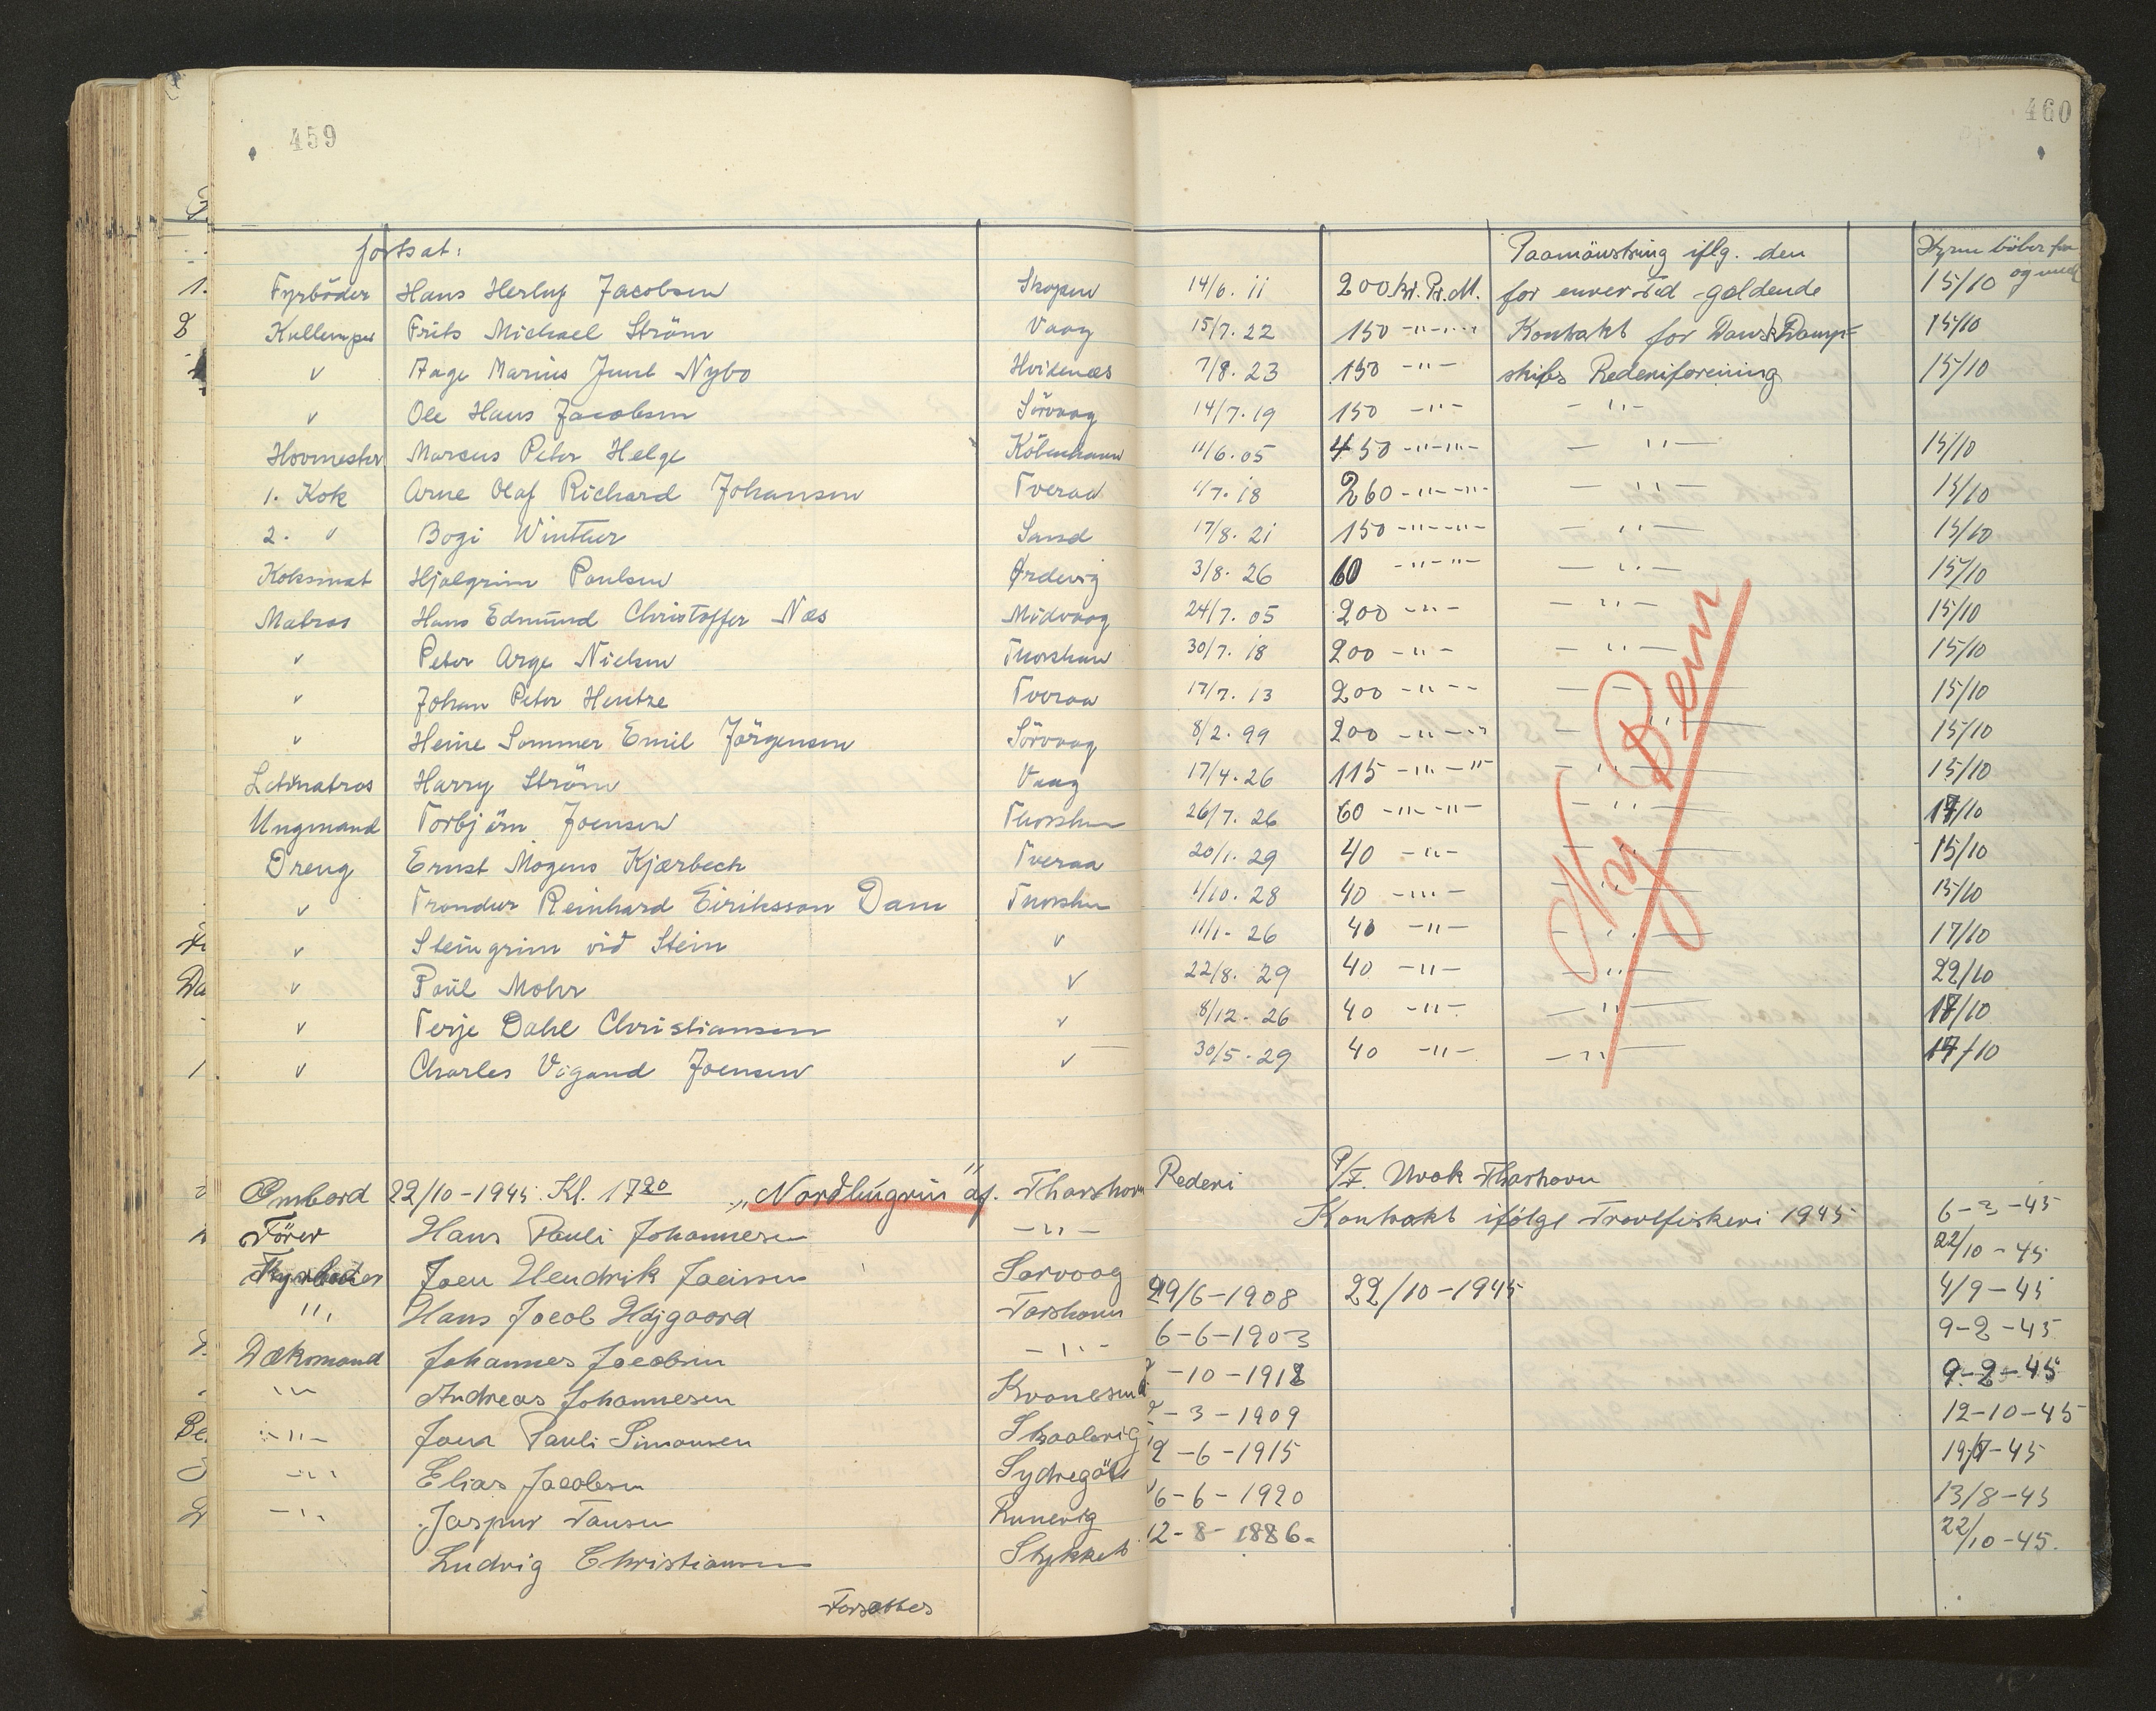 459
460
fortsat:
Paamönstring iflg. den
Hyren löber fra og med
Fyrböder Hans Herluf Jacobsen Skopun 14/6. 11 200 kr. Pr. M. for enver Tid geldende 15/10
Kullemper Frits Michael Ström Vaag 15/7. 22 150 -"-"- Kontrakt for Dansk Damp- 15/10
v Aage Marius Juul Nybo Hvidenæs 7/8. 23 150 -"- skibs Rederiforening 15/10
v Ole Hans Jacobsen Sörvaag 14/7. 19 150 -"- -"-
Hovmester Marcus Peter Helge Köbenhavn 11/6. 05 450 -"-"- -"- 15/10
1. Kok Arne Olaf Richard Johansen Tveraa 1/7. 18 260 -"-"- -"- 15/10
2. v Bogi Winther Sand 17/8. 21 150 -"-"- -"- 15/10
Koksmat Hjalgrim Poulsen Ørdevig 3/8. 26 60 -"-"- -"- 15/10
Matros Hans Edmund Christoffer Næs Midvaag 24/7. 05 200 -"- -"- 15/10
v Peter Arge Nielsen Thorshavn 30/7. 18 200 -"- -"- 15/10
v Johan Peter Hentze Tveraa 17/7. 13 200 -"- -"- 15/10
v Heine Sommer Emil Jörgensen Sörvaag 8/2. 99 200 -"-"- -"- 15/10
Letmatros Harry Ström Vaag 17/4. 26 115 -"-"- -"- 15/10
Ungmand Torbjörn Joensen Thorshn 26/7. 26 60 -"-"- -"- 17/10
Dreng Ernst Mogens Kjærbech Tveraa 20/1. 29 40 -"- -"- 15/10
v Trondur Reinhard Eiriksson Dam Thorshn 1/10. 28 40 -"- -"- 15/10
v Steingrim við Stein v 11/1. 26 40 -"- -"- 17/10
v Poül Mohr v 22/8. 29 40 -"- -"- 22/10
v Terje Dahl Christiansen v 8/12. 26 40 -"- -"- 17/10
v Charles Vigand Joensen v 30/5. 29 40 -"- -"- 17/10
Ny Bem
Ombord 22/10-1945 Kl. 17 20 "Nordlúgvin" af. Thorshavn Rederi P/F. Thorhavn
Kontrakt ifölge Travlfiskeri 1945
Förer Hans Pauli Johannesen -"- 6-3-45
Fyrböder Joen Hendrik Sorvaag 29/6-1908 22/10-1945 22/10-45
"" Hans Jacob Højgaard Torshavn 6-6-1903 4/9-45
Dæksmand Johannes Jacobsen -"- -10-1912 9-2-45
-"- Andreas Johannesen Kvanesund -3-1909 9-2-45
-"- Joen Pauli Simonsen Skaalevig 12-6-1915 12-10-45
-"- Elias Jacobsen Sydregöte 6-6-1920 19/7-45
-"- Jaspur Hansen Runevig 12-8-1886. 13/8-45
Ludvig Christiansen Stykket 22/10-45.
Forsættes